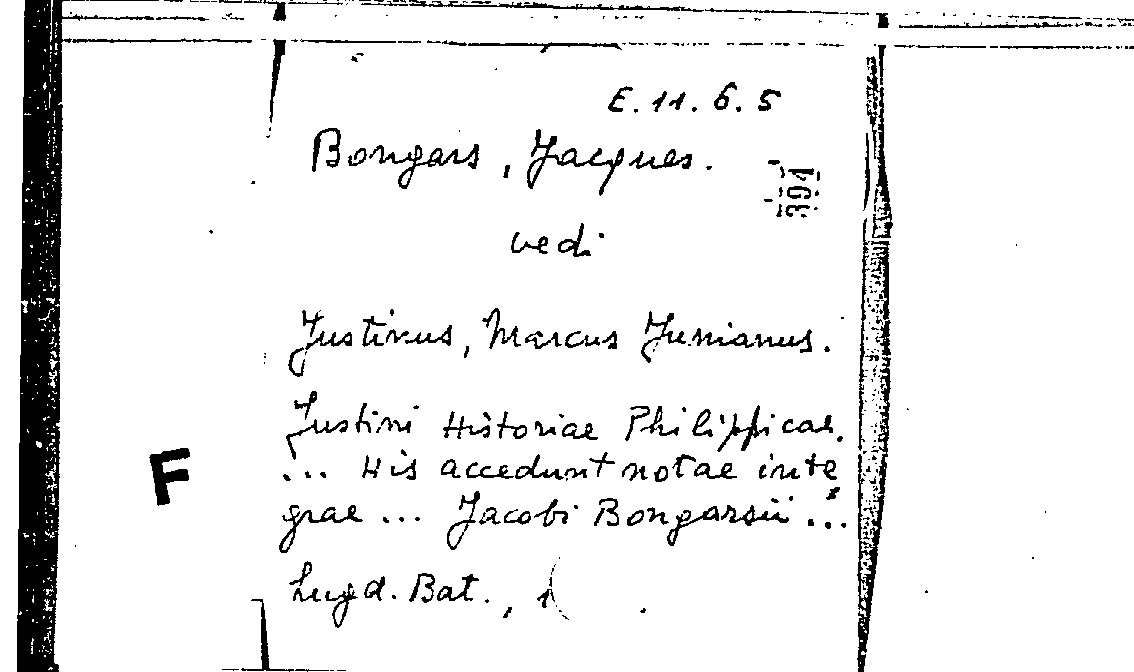 E. 11. 6. 5
Bongars, Jacques.
394
vedi
Justinus, Marcus Junianus.
Justini Historiae Philippicae.
... His accedunt notae inte
grae ... Jacobi Bongarsii ...
F
Lugd. Bat., 1